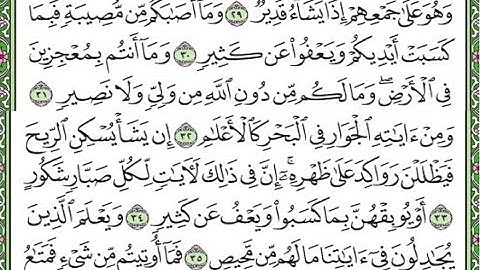 وَهُوَ عَلَىٰ جَمْعِهِمْ إِذَا يَشَآءُ قَدِيرٌ ٢٩ وَمَآ أَصَٰبَكُم مِّن مُّصِيبَةٍ فَبِمَا
كَسَبَتْ أَيْدِيكُمْ وَيَعْفُوا۟ عَن كَثِيرٍ ٣٠ وَمَآ أَنتُم بِمُعْجِزِينَ
فِى ٱلْأَرْضِ ۖ وَمَا لَكُم مِّن دُونِ ٱللَّهِ مِن وَلِىٍّ وَلَا نَصِيرٍ ٣١
وَمِنْ ءَايَٰتِهِ ٱلْجَوَارِ فِى ٱلْبَحْرِ كَٱلْأَعْلَٰمِ ٣٢ إِن يَشَأْ يُسْكِنِ ٱلرِّيحَ
فَيَظْلَلْنَ رَوَاكِدَ عَلَىٰ ظَهْرِهِۦٓ ۚ إِنَّ فِى ذَٰلِكَ لَءَايَٰتٍ لِّكُلِّ صَبَّارٍ شَكُورٍ
٣٣ أَوْ يُوبِقْهُنَّ بِمَا كَسَبُوا۟ وَيَعْفُ عَن كَثِيرٍ ٣٤ وَيَعْلَمَ ٱلَّذِينَ
يُجَٰدِلُونَ فِىٓ ءَايَٰتِنَا مَا لَهُم مِّن مَّحِيصٍ ٣٥ فَمَآ أُوتِيتُم مِّن شَىْءٍ فَمَتَٰعُ